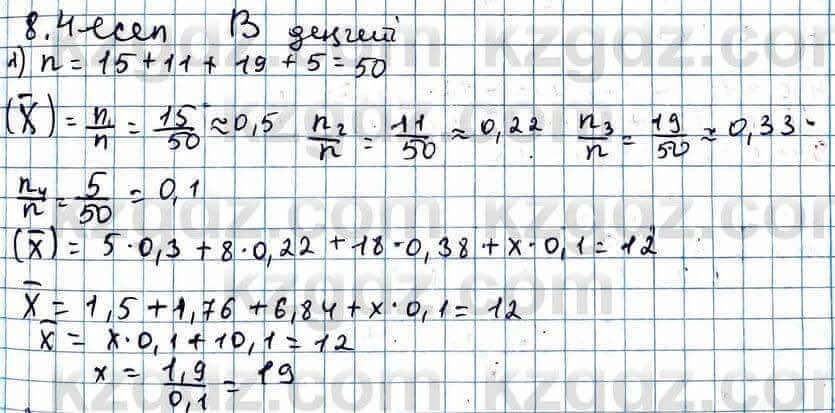 8.4 есеп В деңгей
1) n = 15 + 11 + 19 + 5 = 50
(X̄) = n₁/n = 15/50 ≈ 0,5 n₂/n = 11/50 ≈ 0,22 n₃/n = 19/50 ≈ 0,33
n₄/n = 5/50 = 0,1
(x̄) = 5·0,3 + 8·0,22 + 18·0,38 + x·0,1 = 12
X̄ = 1,5 + 1,76 + 6,84 + x·0,1 = 12
x̄ = x·0,1 + 10,1 = 12
x = 1,9/0,1 = 19